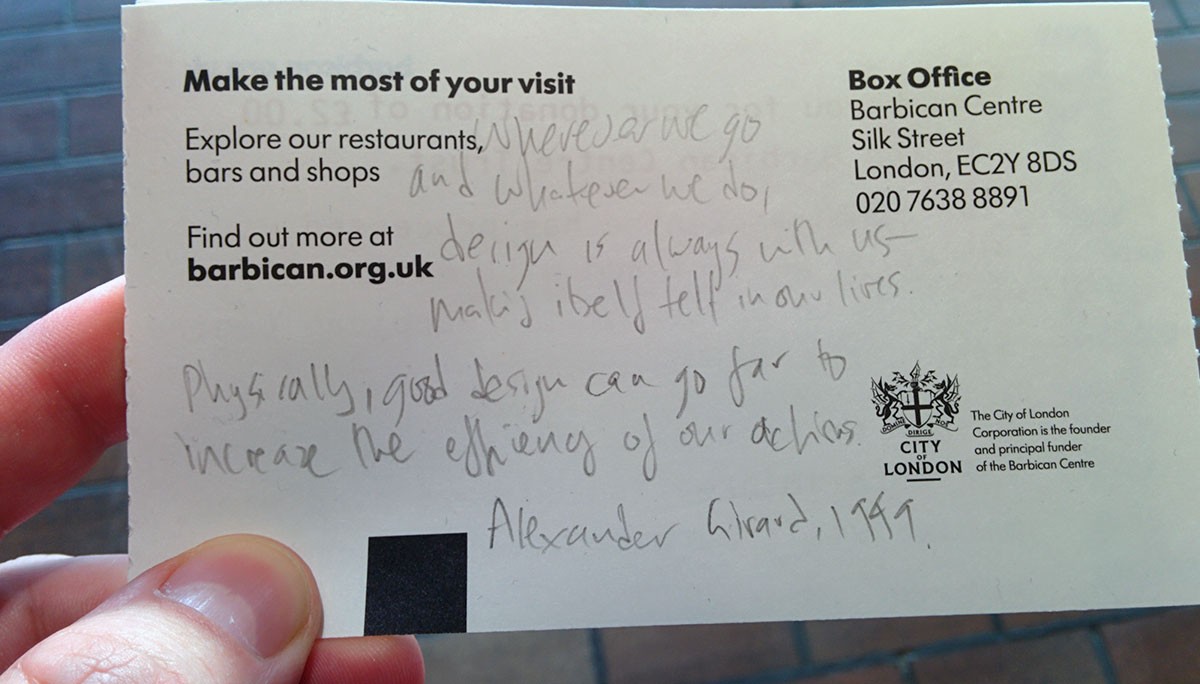 Make the most of your visit
Explore our restaurants,
bars and shops
Find out more at
barbican.org.uk
Box Office
Barbican Centre
Silk Street
London, EC2Y 8DS
020 7638 8891
Wherever we go
and whatever we do,
design is always with us—
making itself felt in our lives.
Physically, good design can go far to
increase the effiency of our actions.
Alexander Girard, 1949.
DOMINE NOS
DIRIGE
CITY
OF
LONDON
The City of London
Corporation is the founder
and principal funder
of the Barbican Centre